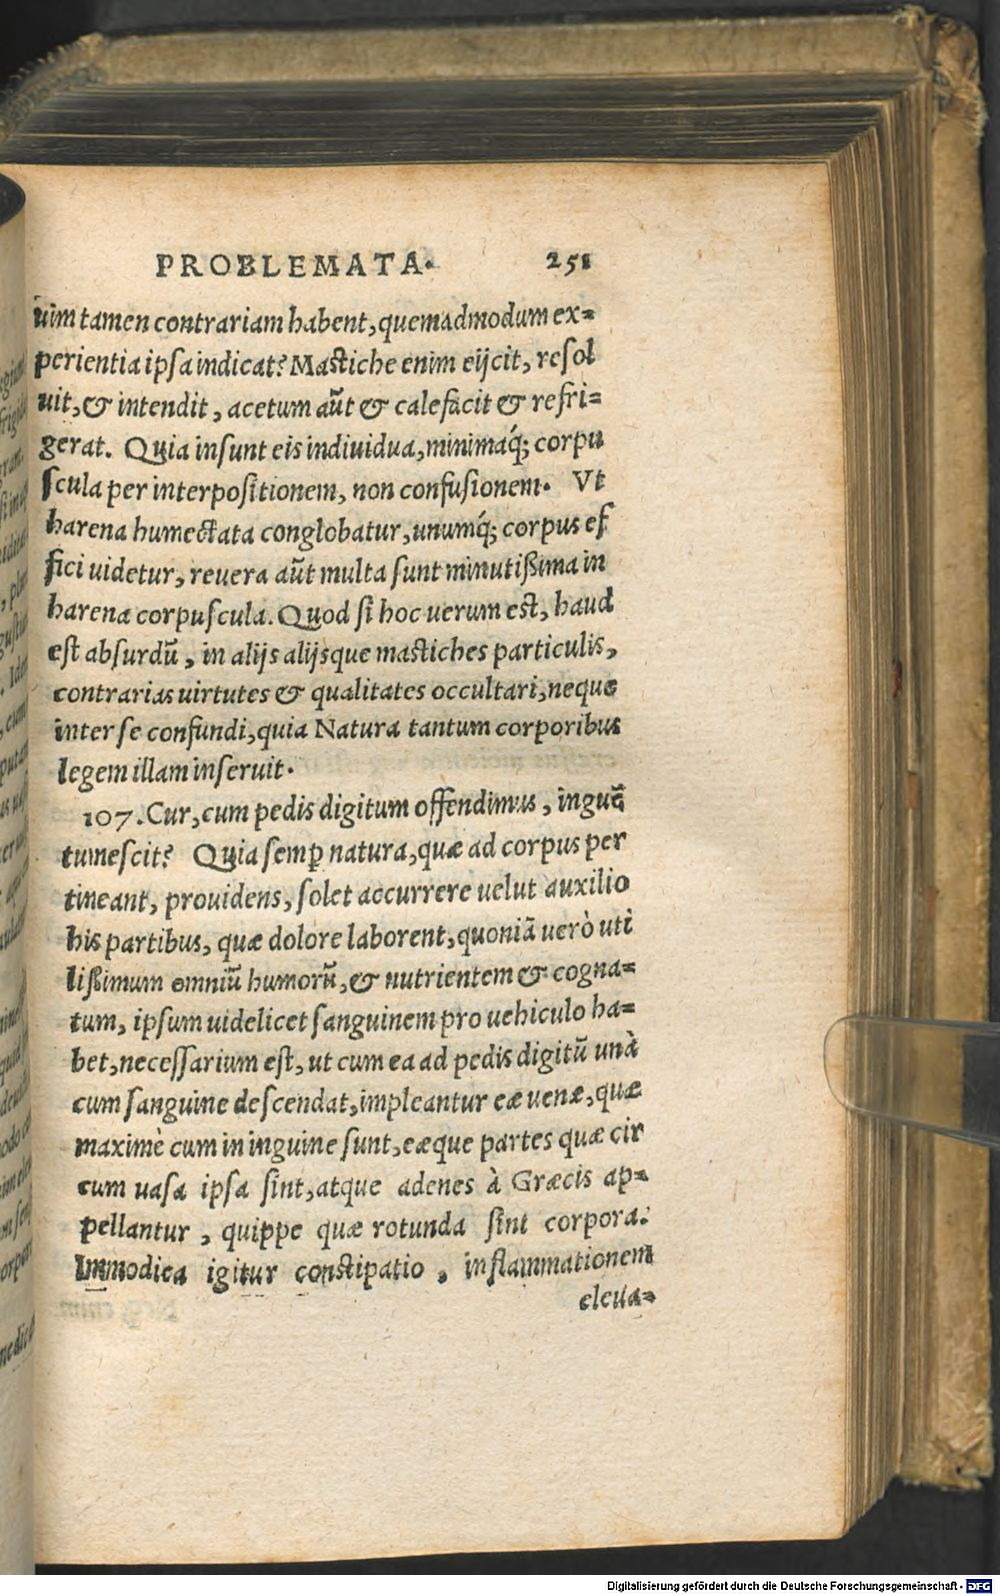 PROBLEMATA. 251
uim tamen contrariam habent, quemadmodum ex=
perientia ipsa indicat? Mastiche enim eijcit, resol
uit, & intendit, acetum aũt & calefacit & refri=
gerat. Quia insunt eis indiuidua, minimaq́; corpu
scula per interpositionem, non confusionem. Vt
harena humectata conglobatur, unumq́; corpus ef
fici uidetur, reuera aũt multa sunt minutißima in
harena corpuscula. Quod si hoc uerum est, haud
est absurdũ, in alijs alijsque mastiches particulis,
contrarias uirtutes & qualitates occultari, neque
inter se confundi, quia Natura tantum corporibus
legem illam inseruit.
107. Cur, cum pedis digitum offendimus, inguẽ
tumescit? Quia semꝑ natura, quæ ad corpus per
tineant, prouidens, solet accurrere uelut auxilio
his partibus, quæ dolore laborent, quoniã uerò uti
lißimum omniũ humorũ, & nutrientem & cogna=
tum, ipsum uidelicet sanguinem pro uehiculo ha=
bet, necessarium est, ut cum ea ad pedis digitũ unà
cum sanguine descendat, impleantur eæ uenæ, quæ
maximè cum in inguine sunt, eæque partes quæ cir
cum uasa ipsa sint, atque adenes à Græcis ap=
pellantur, quippe quæ rotunda sint corpora.
Immodica igitur constipatio, inflammationem
eleua=
Digitalisierung gefördert durch die Deutsche Forschungsgemeinschaft - DFG